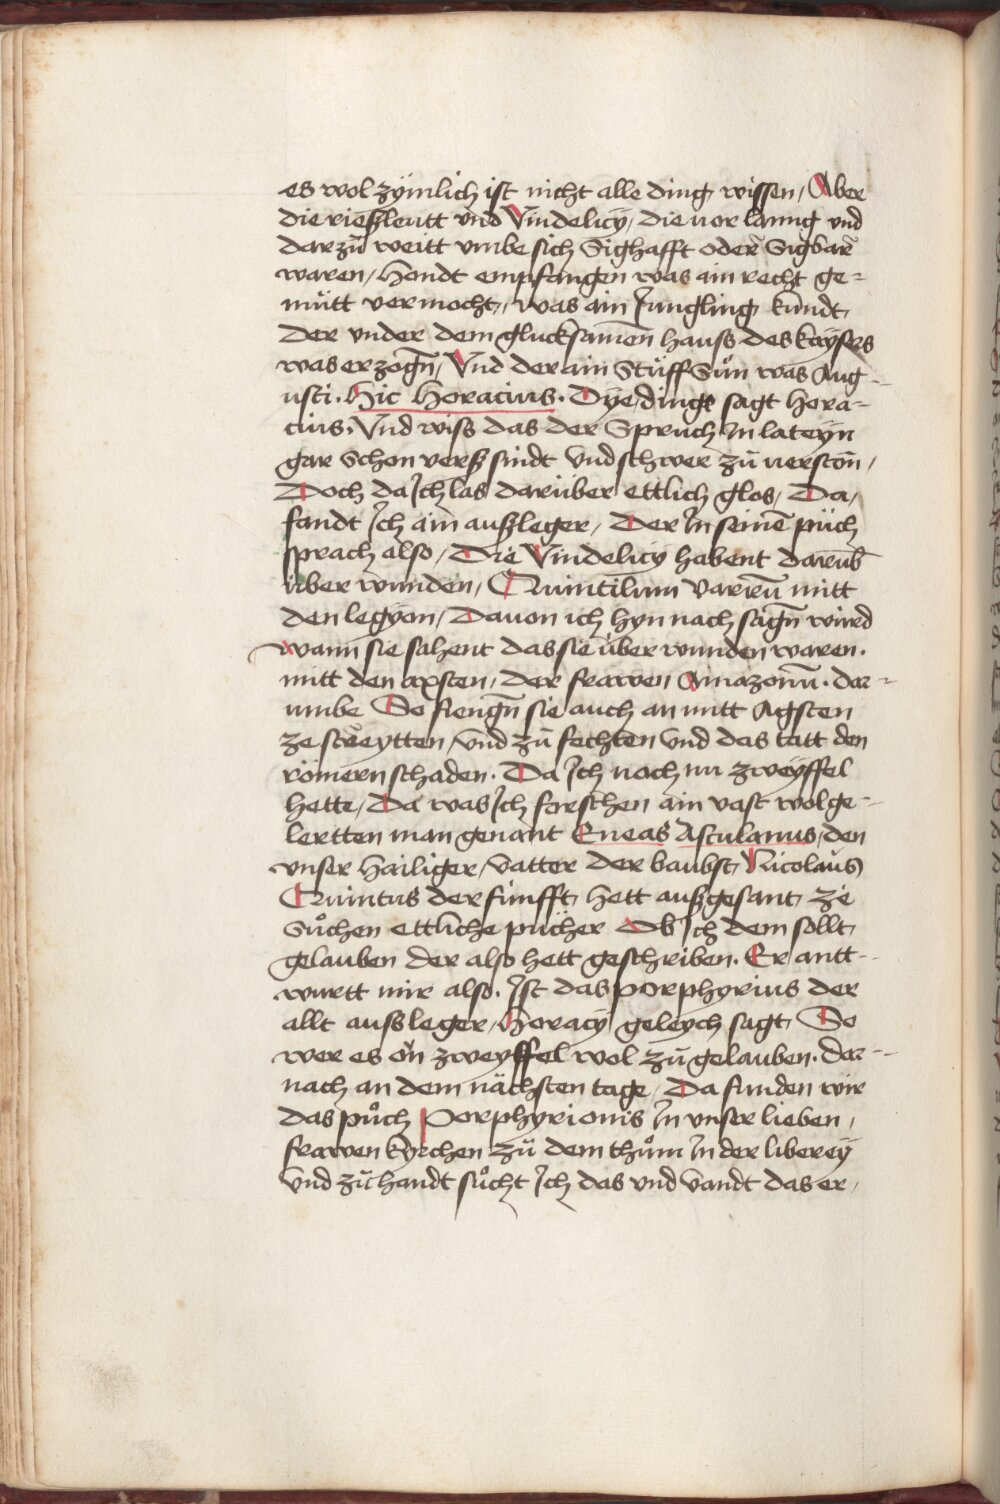 es wol zÿmlich ist nicht alle ding wissen / Aber
die rießleutt vnd Vindelicÿ / die vor lanng vnd
darzů weitt vmbe sich Sighafft oder Sigbar
waren / Hondt empfangen was ain recht ge-
můtt vermocht / was ain Jungling kundt
der vnder dem glucksamen̄ hauss des kaÿsers
was erzogn̄ / Vnd der ain Stuͤff Sůn was Aug-
usti . Hic Horacius . Dÿe dinge sagt hora-
cius . Vnd wiss das der Spruch In lateÿn
gar Schon verß sindt vnd schwer zů uerston̄ /
Doch da Ich las daruber ettlich glos / Da /
fandt Ich ain außleger / Der In seinē půch
sprach also / Die Vindelicÿ habent darūb
uber wunden / Quintilium varrū mitt
den legÿon / Dauon ich hyn nach sagn̄ wurd
wann sie sahent das sie uber wunden waren .
mitt den axsten / der frawen Amazonū . dar-
umbe So fiengn̄ sie auch an mitt Agsten
ze streÿtten / vnd zů fechten vnd das tatt den
römern schaden . Da Ich noch nu zweÿffel
hette / Da was Ich forschen ain vast wolge-
lertten man genant Eneas Asculanus / den
vnser Hailiger / vatter der baubst / Nicolaus
Quintus der fünfft / hett außgesant / ze
Sůchen ettliche pücher Ob Ich dem sollt
gelauben der also hett geschriben . Er antt-
wurtt mir also . Ist das porphyrius der
allt aussleger / Horacÿ geleÿch sagt / So
wer es on zweÿffel wol zů gelauben . dar-
nach an dem nächsten tage / Da funden wir
das půch Porphyrionis In vnser lieben /
frawen kÿrchen zů dem thům In der libereÿ
vnd zů handt sůcht Ich das vnd vandt das er /